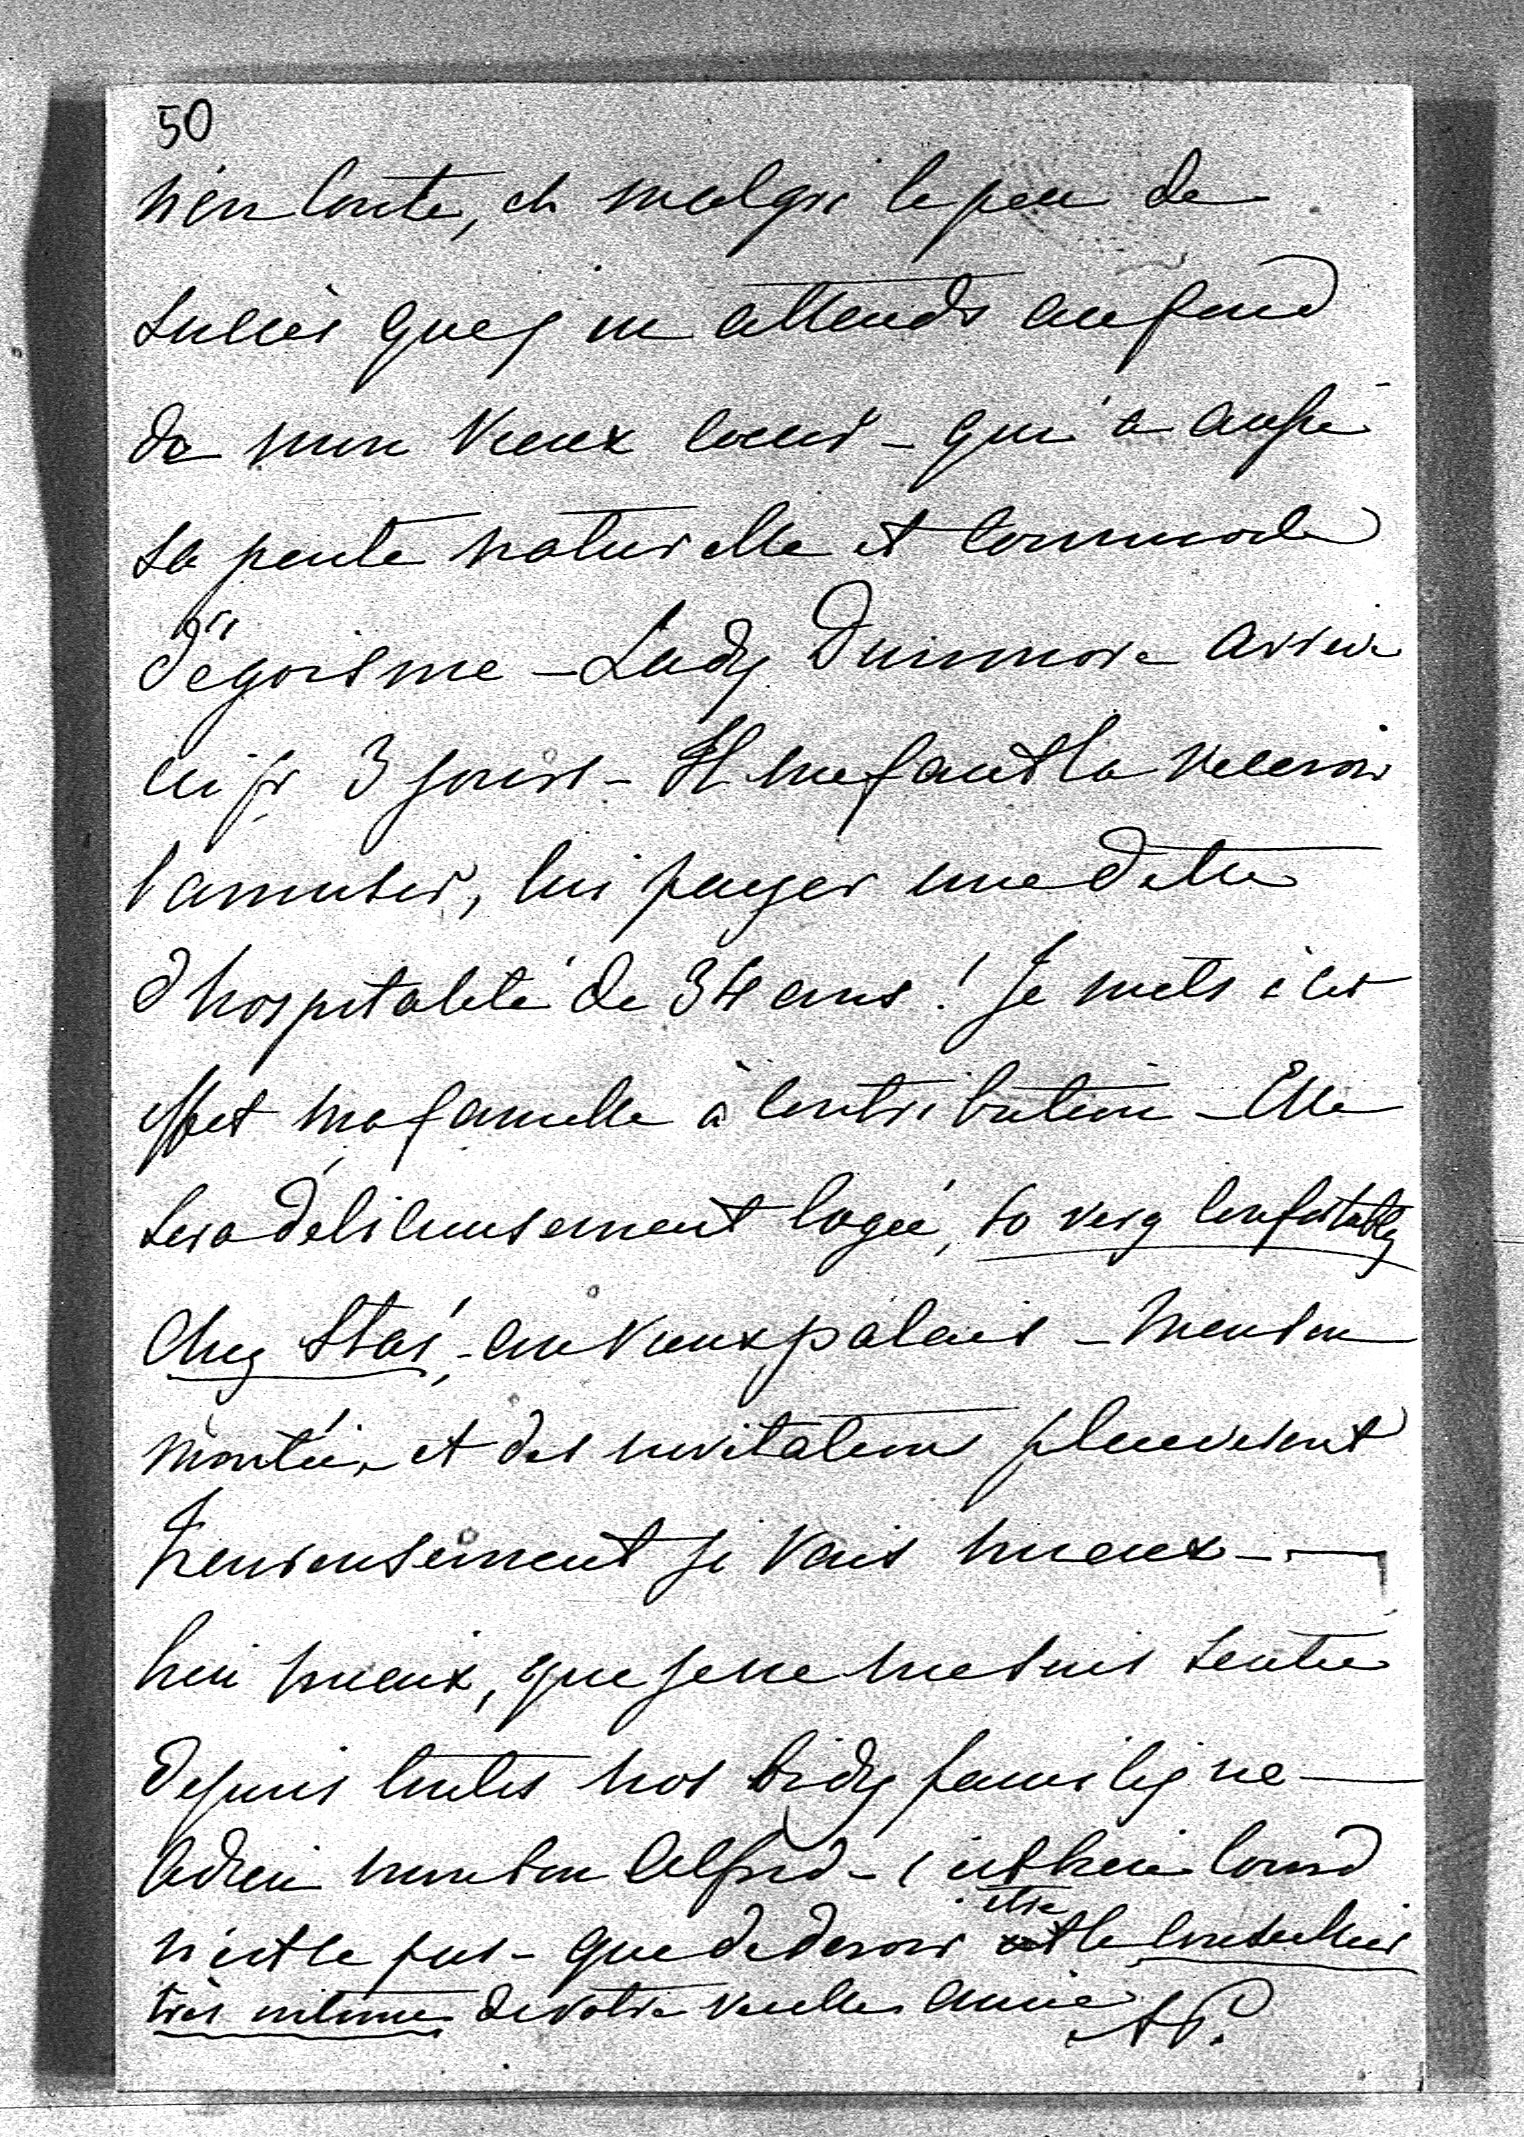 50
m'en coute, et malgré le peu de
succès que j'en attends au fond
de mon vieux coeur – qui a aussi
sa pente naturelle et commode
d'égoisme – Lady Dunmore arrive
ici pr 3 jours – Il me faut la recevoir
l'amuser, lui payer une dette
d'hospitalité de 34 ans ! Je mets à cet
effet ma famille à contribution – Elle
sera délicieusement logée, so very confortably
chez Stas, – au vieux palais – maison
montée, et des invitations pleuveront
Heureusement je vais mieux –
bien mieux, que je ne me suis sentie
depuis toutes nos
Adieu mon bon Alfred – c'est bien lourd
n'est ce pas – que de devoir être le conseiller
très intime de votre vieille amie